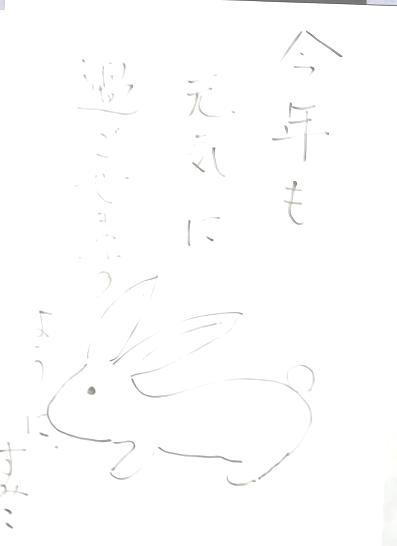 今年も
元気に
過ごせます
ように
すみに